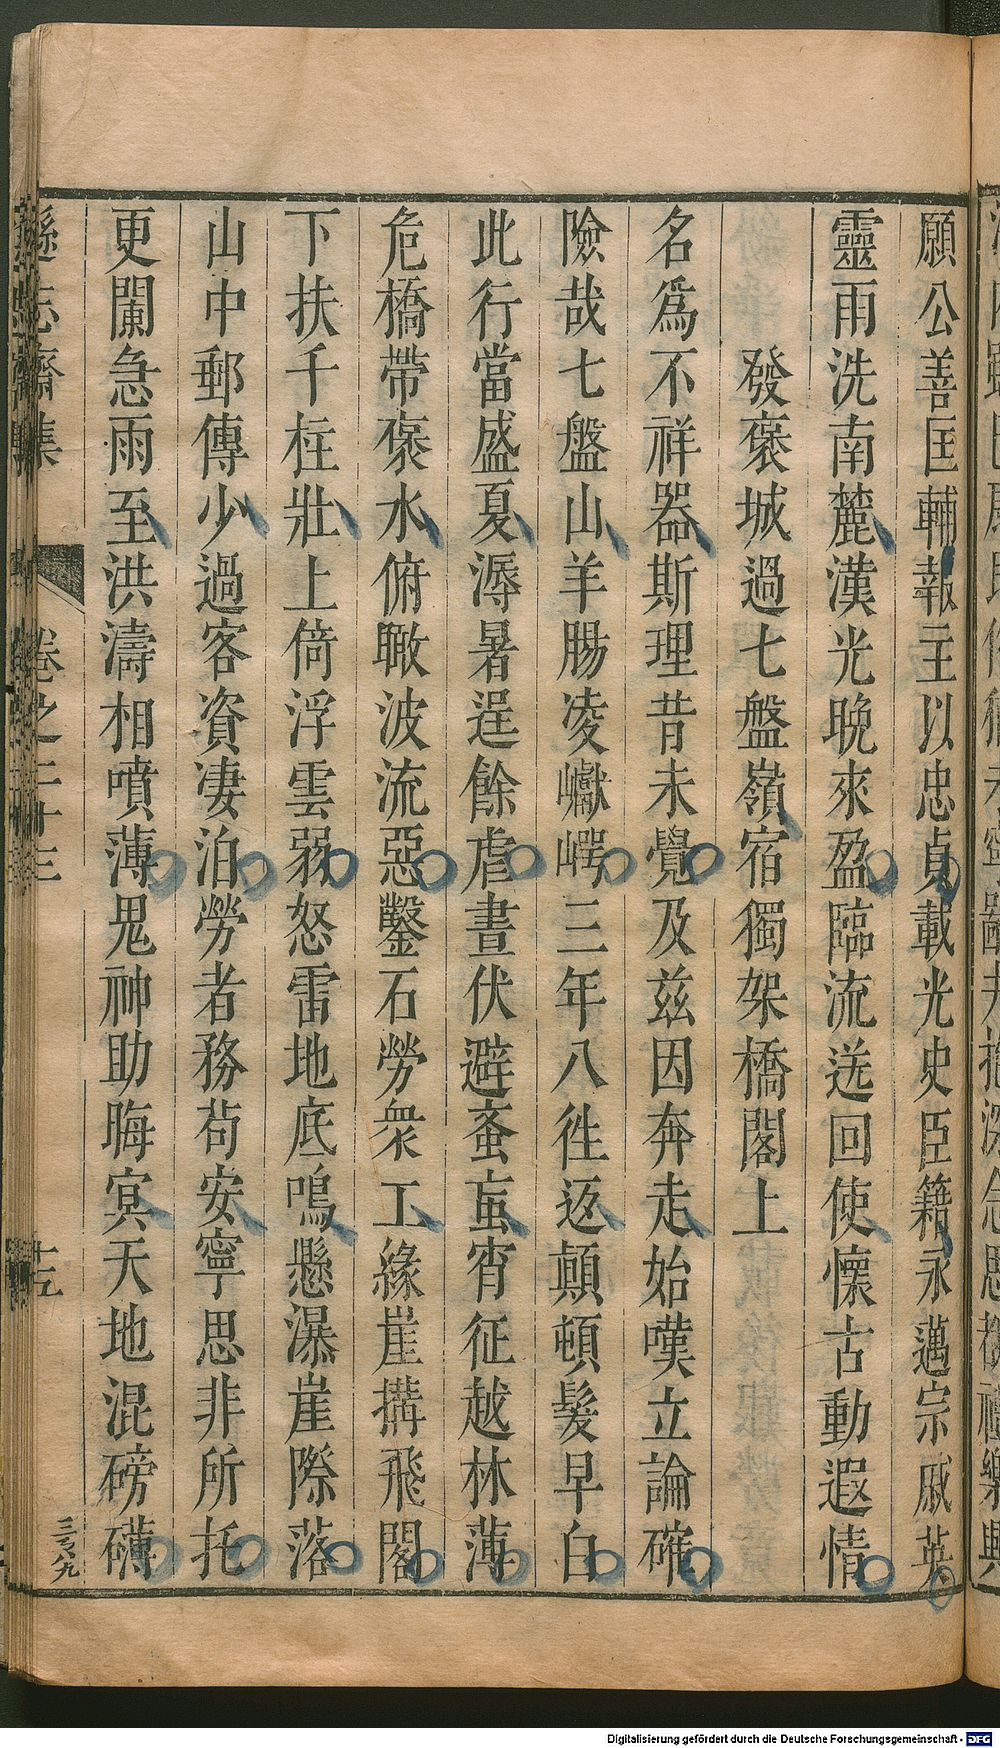 願公善匡輔報主以忠貞載光史臣籍永邁宗戚英
靈雨洗南麓漢光晩來盈臨流送回使懷古動遐情
發褒城過七盤嶺宿獨架橋閣上
名爲不祥器斯理昔未覺及茲因奔走始嘆立論確
險哉七盤山羊腸凌巘崿三年八徃返顛頓髮早白
此行當盛夏溽暑逞餘虐晝伏避蚤蝱宵征越林薄
危橋帶褒水俯瞰波流惡鑿石勞衆工緣崖搆飛閣
下扶千柱壯上倚浮雲弱怒雷地底鳴懸瀑崖際落
山中郵傳少過客資淒泊勞者務苟安寧思非所托
更闌急雨至洪濤相噴薄鬼神助晦冥天地混磅礴
遜志齋集
卷之二十三
十五
三百八九
Digitalisierung gefördert durch die Deutsche Forschungsgemeinschaft - DFG